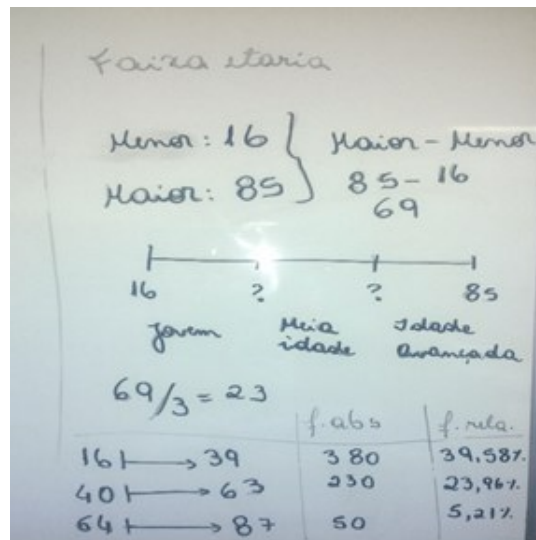 Faixa etaria
Menor: 16 } Maior - Menor
Maior: 85 85 - 16
69
16 ? ? 85
Jovem Meia idade Idade avançada
69/3 = 23
f. abs f. rela.
16 ⊢→ 39 380 39,58%
40 ⊢→ 63 230 23,96%
64 ⊢→ 87 50 5,21%